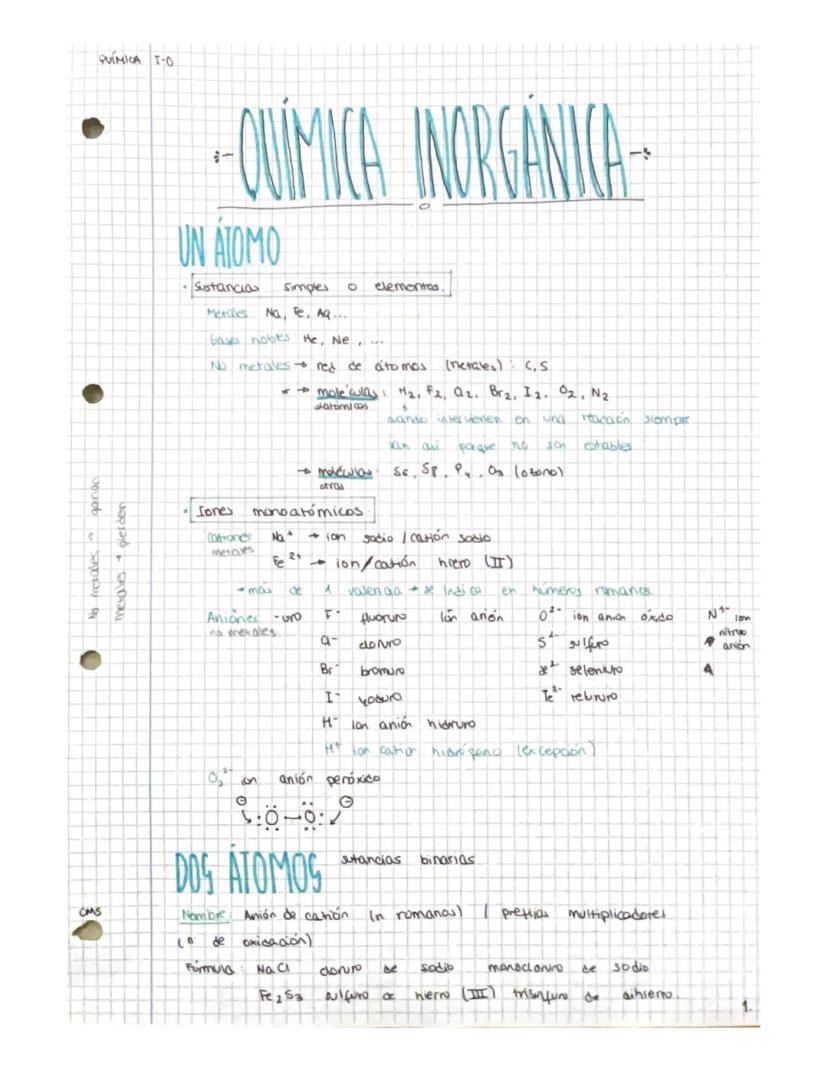 QUÍMICA T-0
-QUÍMICA INORGÁNICA-
UN ÁTOMO
· Sustancias simples o elementos.
Metales Na, Fe, Ag...
Gases nobles He, Ne, ...
No metales → red de átomos (netales): C, S
* → moléculas: H₂, F₂, Cl₂, Br₂, I₂, O₂, N₂
diatómicas
cuando intervienen en una reacción siempre
van así porque no son estables
→ moléculas: S₆, S₈, P₄, O₃ (ozono)
otras
· Iones monoatómicos.
Cationes Na⁺ → ion sodio / catión sodio
metales
Fe²⁺ → ion/catión hierro (II)
*más de 1 valencia → se indica en números romanos
No metales → ganan
metales → pierden
Aniones -uro F⁻ fluoruro ion anión O²⁻ ion anión óxido N³⁻ ion
no metales nitruro
Cl⁻ cloruro S²⁻ sulfuro P anión
Br⁻ bromuro Se²⁻ seleniuro A
I⁻ yoduro Te²⁻ telururo
H⁻ ion anión hidruro
H⁺ ion catión hidrógeno (excepción)
O₂²⁻ ion anión peróxido
⊖ ⊖
:Ö—Ö:
DOS ÁTOMOS sutancias binarias
CMS
Nombre: Anión de catión (n romanos) / prefijos multiplicadores
(nº de oxidación)
Fórmula: NaCl cloruro de sodio monocloruro de sodio
Fe₂S₃ sulfuro de hierro (III) trisulfuro de dihierro.
1.